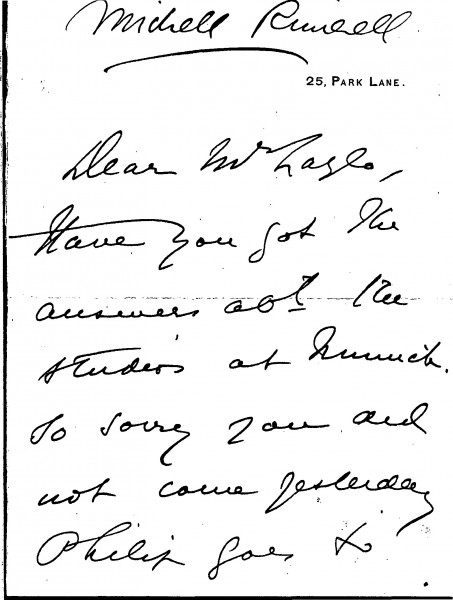 Michell
25, PARK LANE.
Dear Mr Lazlo,
Have you got the
answers abt. the
studios at Munich.
So sorry you did
not come yesterday
Philip goes to